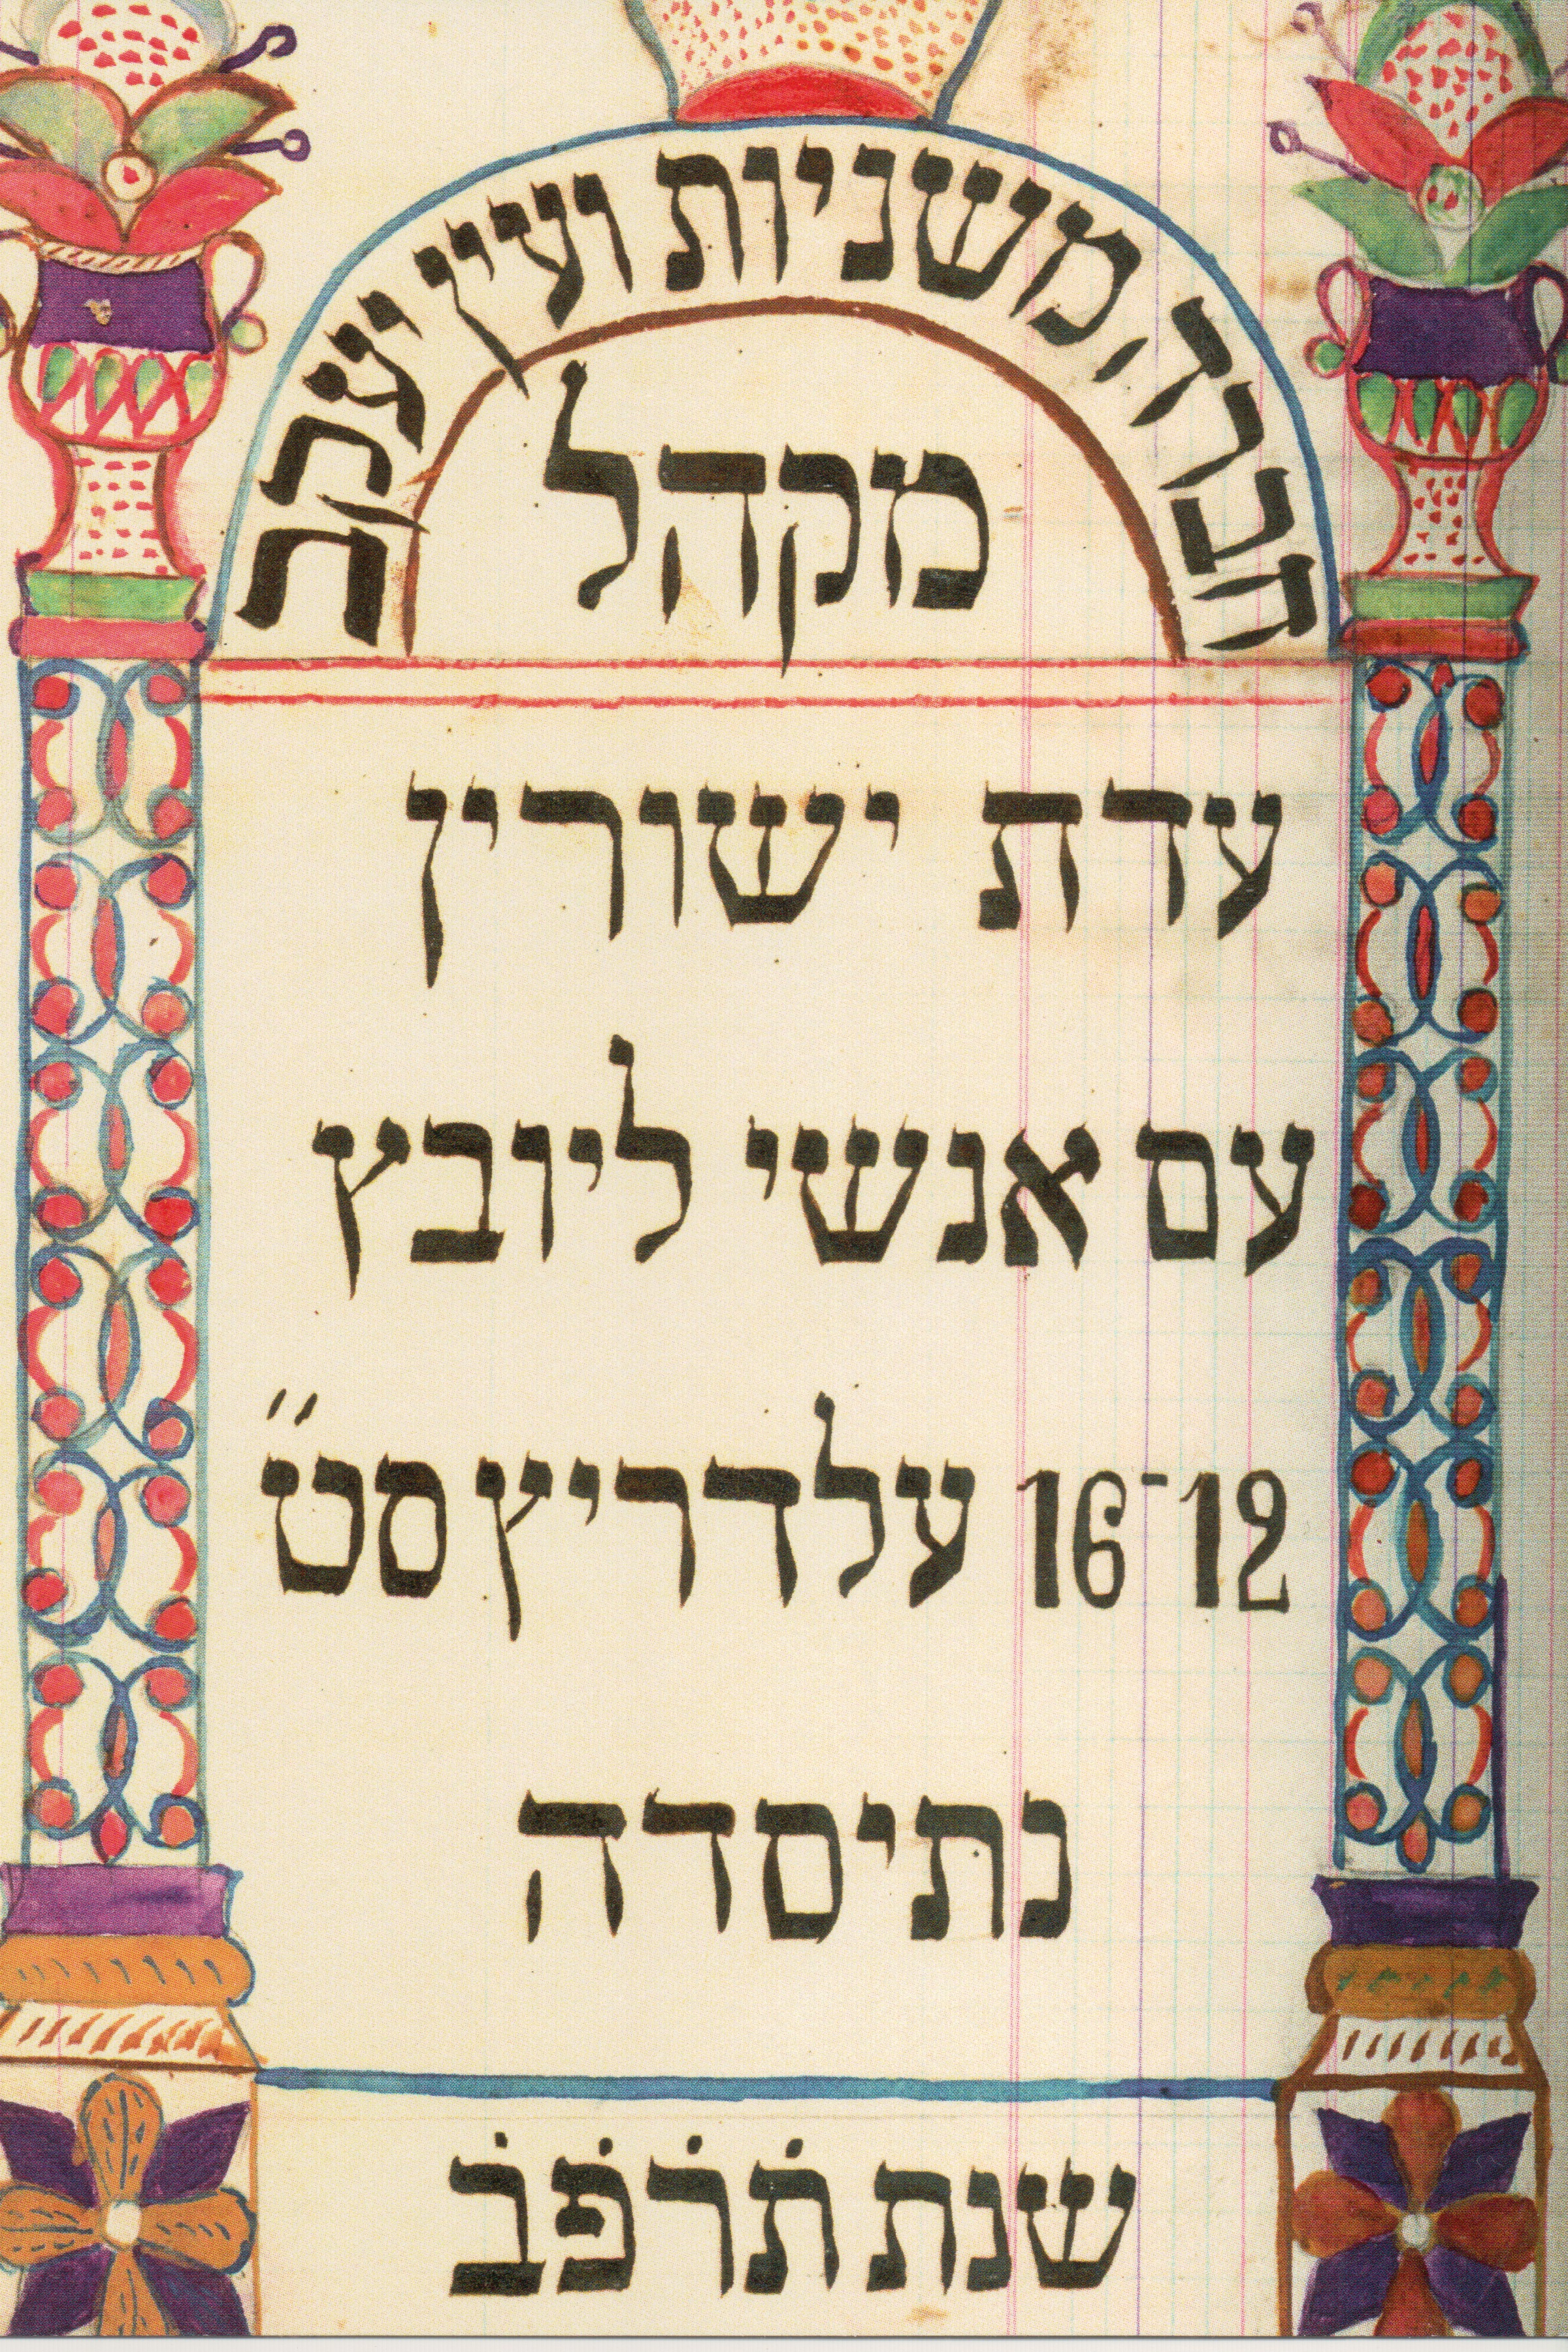 חברה משניות ועין יעקב
מקהל
עדת ישורין
עם אנשי ליובץ
16-12 עלדריץ סט״
נתיסדה
שנת תרפב